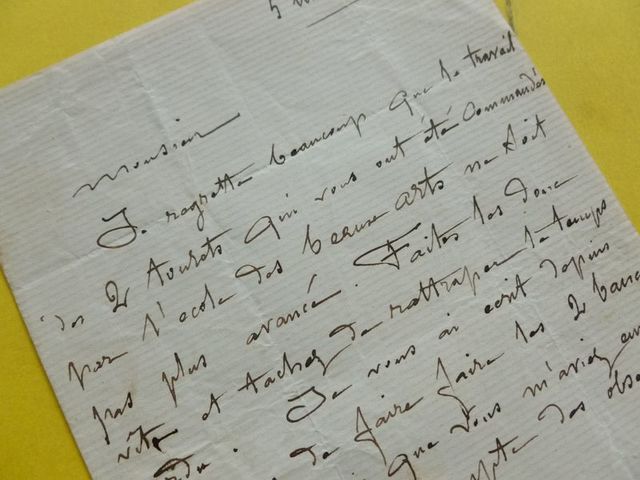 5
Monsieur
Je regrette beaucoup que le travail
des 2 qui vous ont été commandés
par l'ecole des beaux arts ne soit
pas plus avancé. Faites les donc
vite et tachez de rattraper le temps
Je vous ai ecrit depuis
de faire faire les 2
que vous m'aviez
des